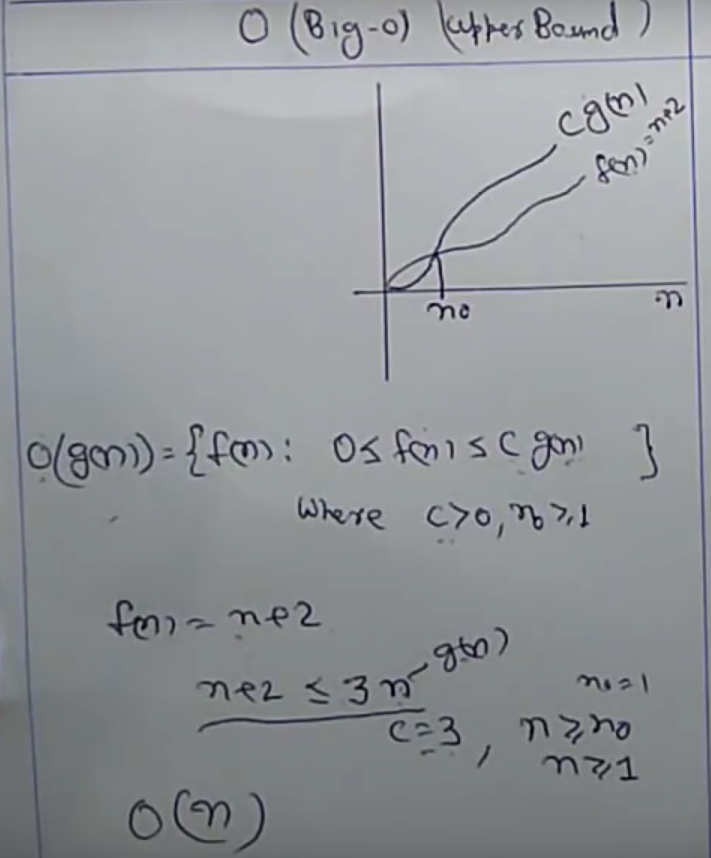 O (Big-O) (upper Bound)
cg(n)
f(n) = n+2
n0
n
O(g(n)) = { f(n) : 0 ≤ f(n) ≤ c g(n) }
Where c>0, n0 ≥ 1
f(n) = n+2
n+2 ≤ 3n g(n)
n0=1
c=3, n ≥ n0
n ≥ 1
O(n)